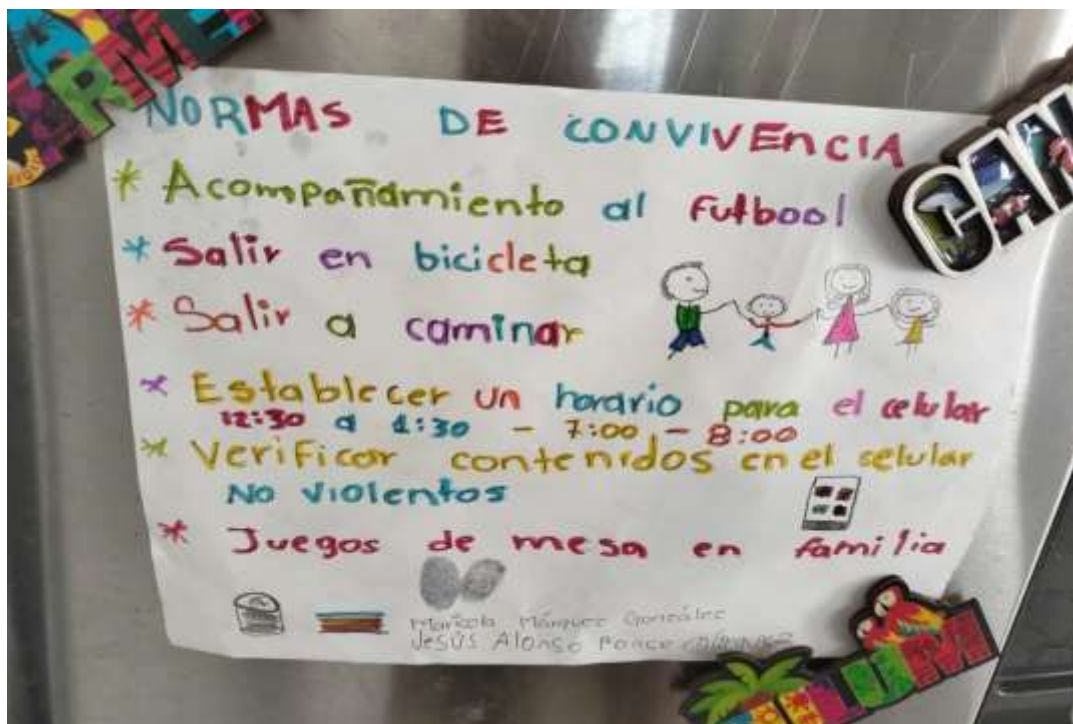 NORMAS DE CONVIVENCIA
* Acompañamiento al Futbool
* Salir en bicicleta
* Salir a caminar
* Establecer un horario para el celular
12:30 a 1:30 - 7:00 - 8:00
* Verificar contenidos en el selular
No violentos
* Juegos de mesa en familia
Márquez González
Jesús Alonso Ponce
CAN